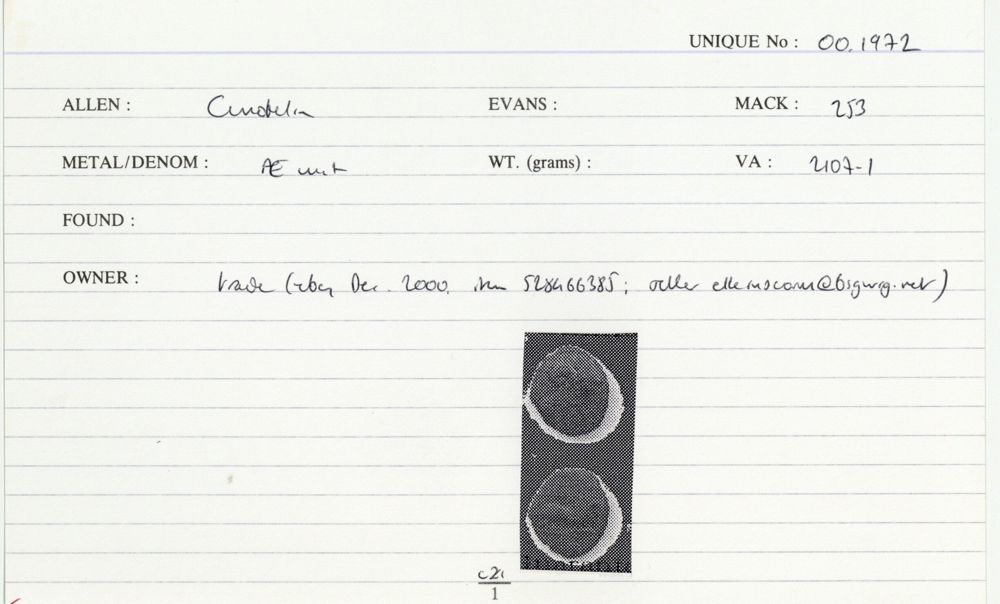 UNIQUE No : 00.1972
ALLEN : Cunobelin EVANS : MACK : 253
METAL/DENOM : Æ unit WT. (grams) : VA : 2107-1
FOUND :
OWNER : trade (ebay Dec. 2000. item 528466385; seller
1